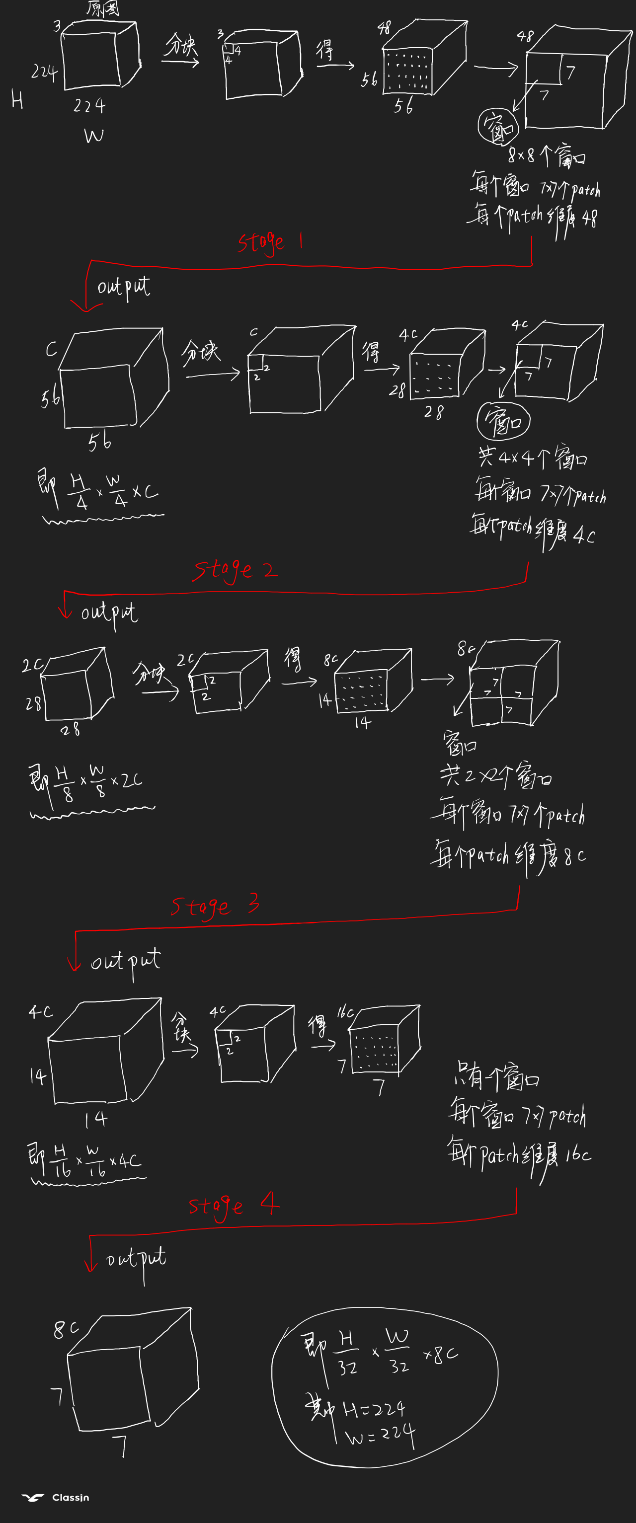 原图
3
224
H
224
W
分块
3
4
4
得
48
56
56
48
7
7
窗口
8×8个窗口
每个窗口 7×7个patch
每个patch维度48
Stage 1
output
C
56
56
即 H/4 × W/4 × C
分块
C
2
2
得
4C
28
28
4C
7
7
窗口
共4×4个窗口
每个窗口 7×7个patch
每个patch维度4C
Stage 2
output
2C
28
28
即 H/8 × W/8 × 2C
分块
2C
2
2
得
8C
14
14
8C
7
7
7
7
窗口
共2×2个窗口
每个窗口 7×7个patch
每个patch维度8C
Stage 3
output
4C
14
14
即 H/16 × W/16 × 4C
分块
4C
2
2
得
16C
7
7
只有一个窗口
每个窗口 7×7 patch
每个patch维度16C
Stage 4
output
8C
7
7
即 H/32 × W/32 × 8C
其中 H=224
W=224
ClassIn